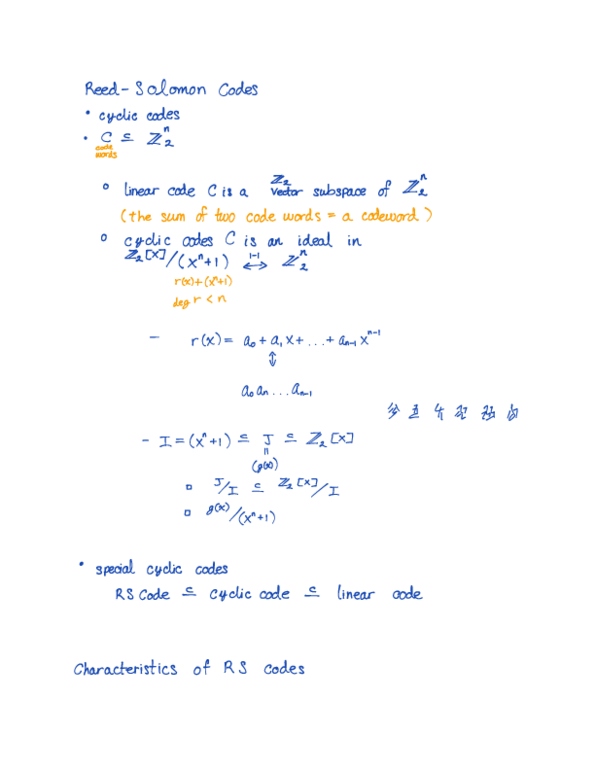 Reed-Solomon Codes
• cyclic codes
• C ⊆ ℤ₂ⁿ
code words
○ linear code C is a ℤ₂ vector subspace of ℤ₂ⁿ
(the sum of two code words = a codeword)
○ cyclic codes C is an ideal in
ℤ₂[x]/(xⁿ+1) ↔ 1-1 ℤ₂ⁿ
r(x)+(xⁿ+1)
deg r < n
– r(x) = a₀ + a₁x + ... + aₙ₋₁xⁿ⁻¹
↕
a₀ aₙ ... aₙ₋₁
– I = (xⁿ+1) ⊆ J ⊆ ℤ₂[x]
(g(x))
□ J/I ⊆ ℤ₂[x]/I
□ g(x)/(xⁿ+1)
• special cyclic codes
RS Code ⊆ cyclic code ⊆ linear code
Characteristics of RS codes